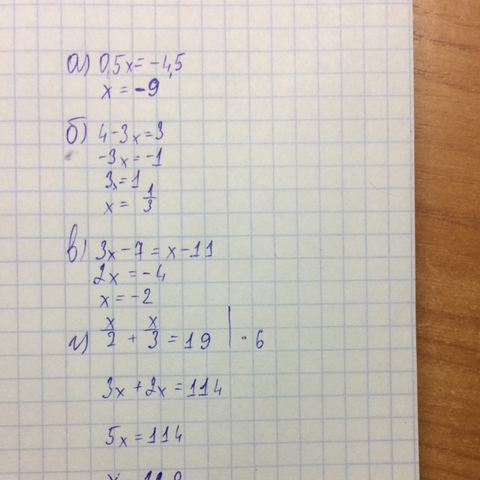 а) 0,5x = -4,5
x = -9
б) 4 - 3x = 3
-3x = -1
3x = 1
x = 1/3
в) 3x - 7 = x - 11
2x = -4
x = -2
г) x/2 + x/3 = 19 | · 6
3x + 2x = 114
5x = 114